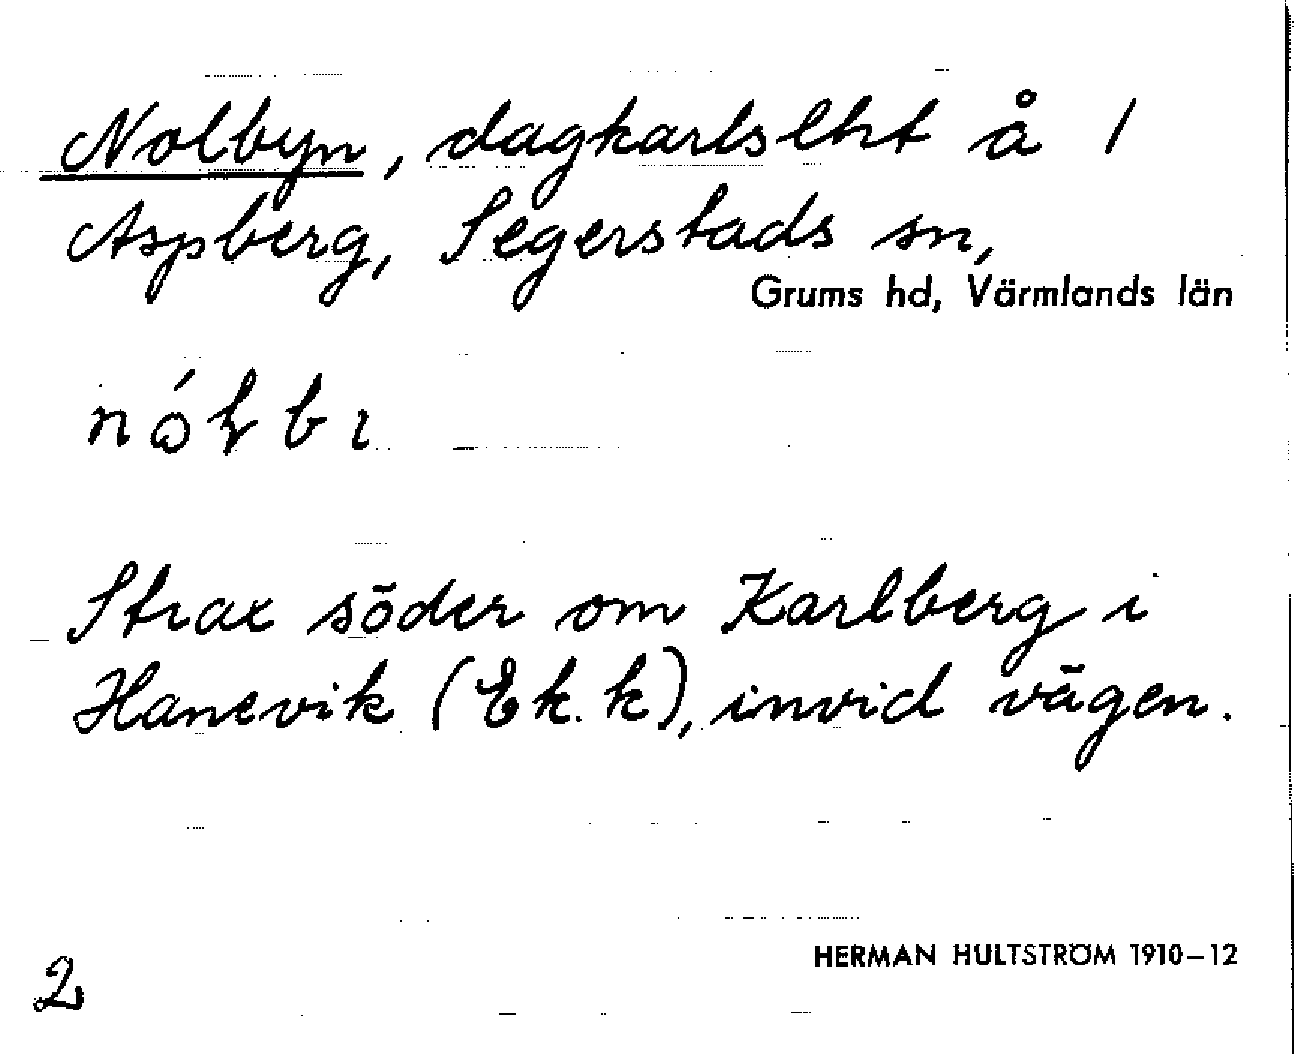 Nolbyn, dagkarlslht å 1
Aspberg, Segerstads sn,
Grums hd, Värmlands län
Strax söder om Karlberg i
Hanevik (Ek. k), invid vägen.
HERMAN HULTSTRÖM 1910–12
2